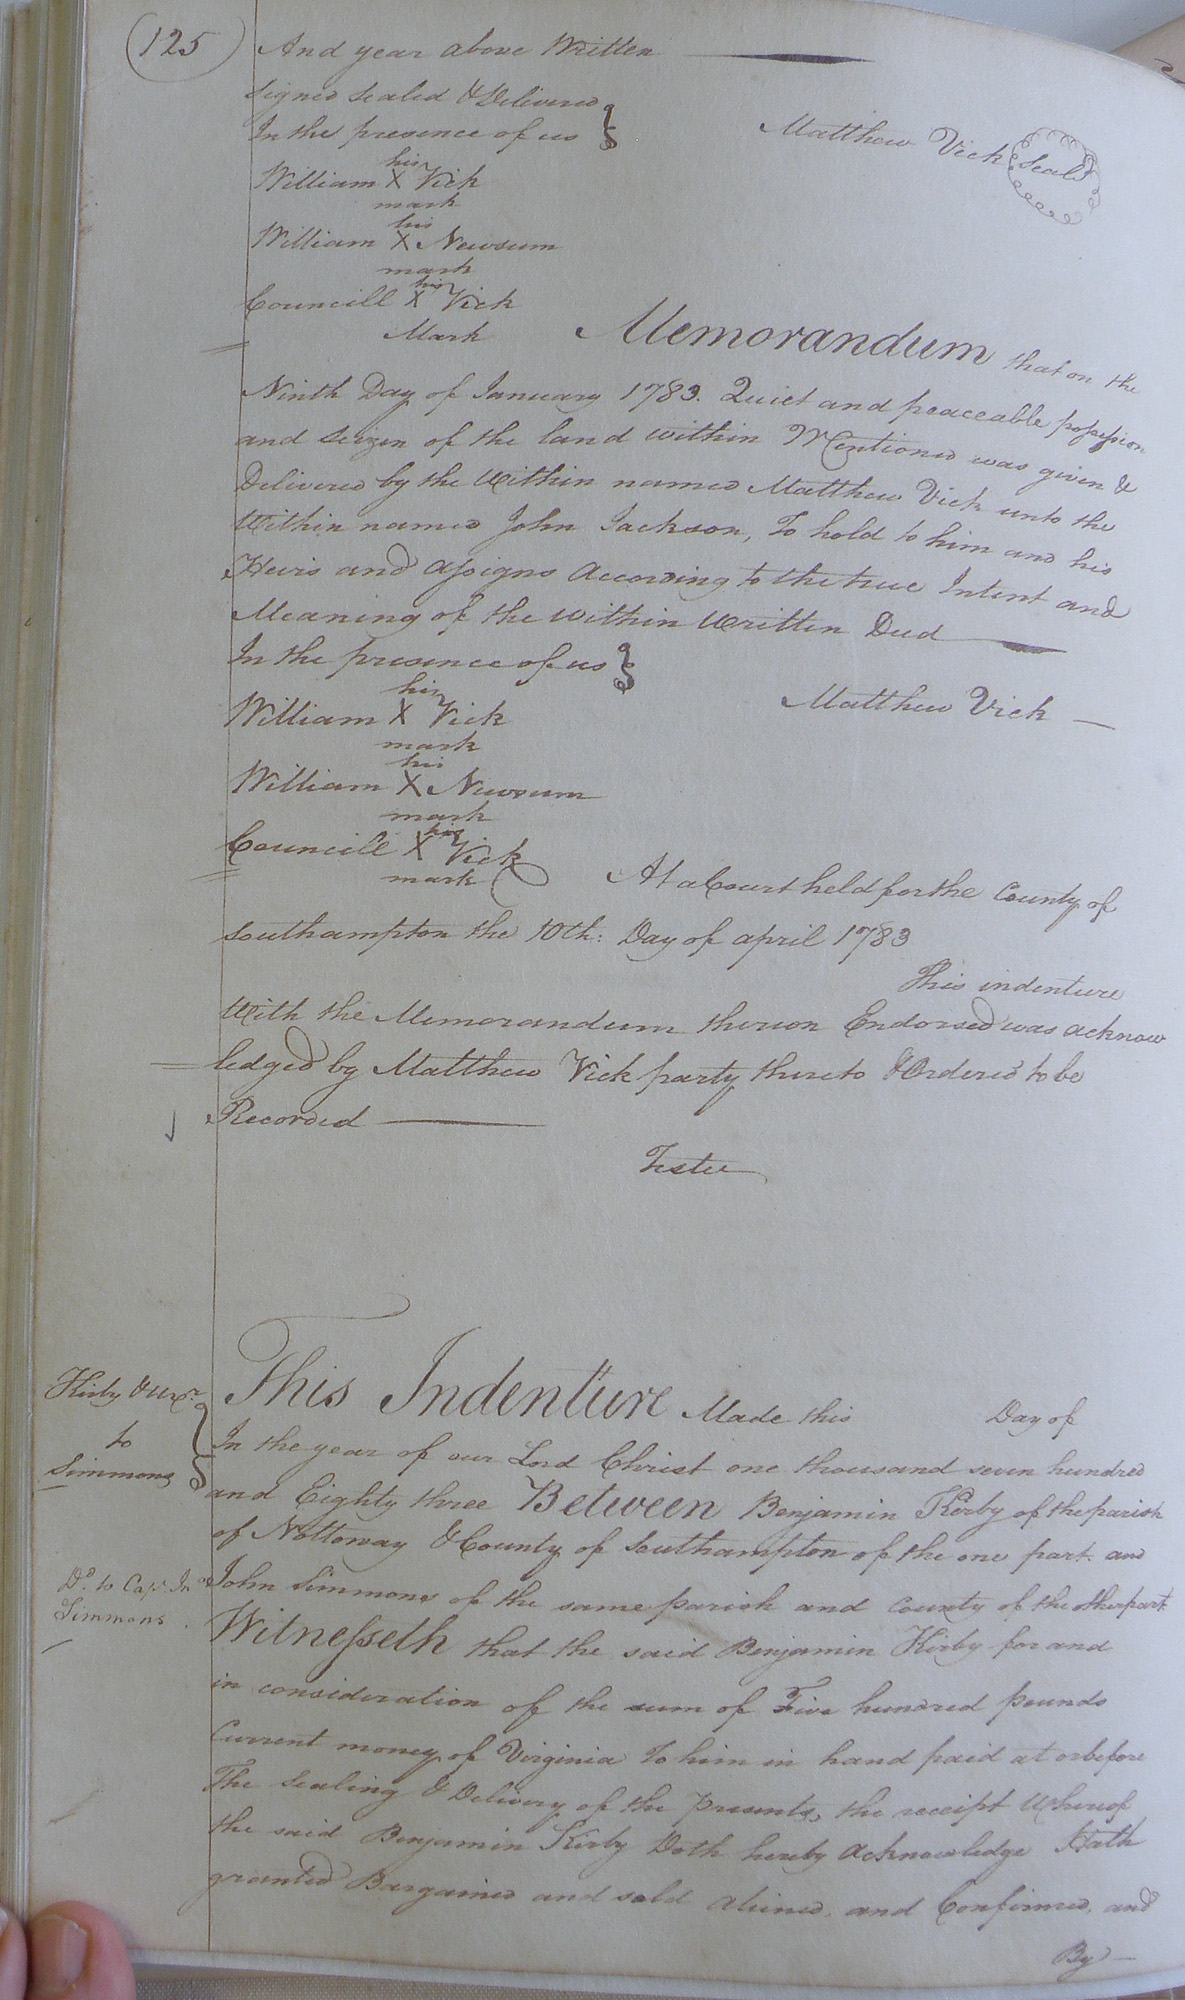 125
And year above Written
signed sealed & Delivered
In the presence of us
Matthew Vick Seal
his
William X Vick
mark
his
William X Newsum
mark
his
Councill X Vick
Mark
Memorandum that on the
Ninth Day of January 1783. Quiet and peaceable possession
and Seizen of the land within Mentioned was given &
Delivered by the Within named Matthew Vick unto the
Within named John Jackson, To hold to him and his
Heirs and assigns According to the true Intent and
Meaning of the within Written Deed
In the presence of us
Matthew Vick
his
William X Vick
mark
his
William X Newsum
mark
his
Councill X Vick
mark
At a Court held for the County of
Southampton the 10th: Day of april 1783
This indenture
With the Memorandum thereon Endorsed was acknow
ledged by Matthew Vick party thereto & Ordered to be
Recorded
Teste
Kirby & Uxr.
to
Simmons
This Indenture Made this Day of
In the year of our Lord Christ one thousand seven hundred
and Eighty three Between Benjamin Kirby of the parish
of Nottoway & County of Southampton of the one part and
Do. to Cap. Jno.
Simmons.
John Simmons of the same parish and County of the other part
Witnesseth that the said Benjamin Kirby for and
in consideration of the sum of Five hundred pounds
Current money of Virginia To him in hand paid at or before
The Sealing & Delivery of the presents, the receipt Whereof
the said Benjamin Kirby Doth hereby acknowledge Hath
granted Bargained and sold aliened, and Confirmed, and
By